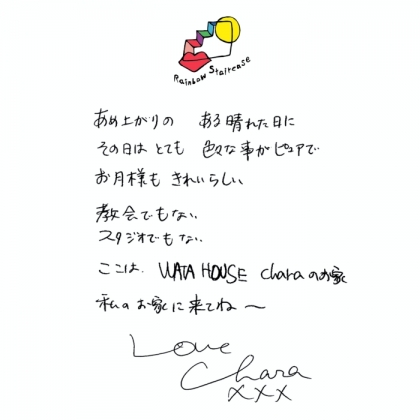 Rainbow Staircase
あめ上がりの ある晴れた日に
その日は とても 色々な事がピュアで
お月様も きれいらしい、
教会でもない、
スタジオでもない、
ここは、WATA HOUSE charaのお家
私のお家に来てね〜
Love
Chara
xxx